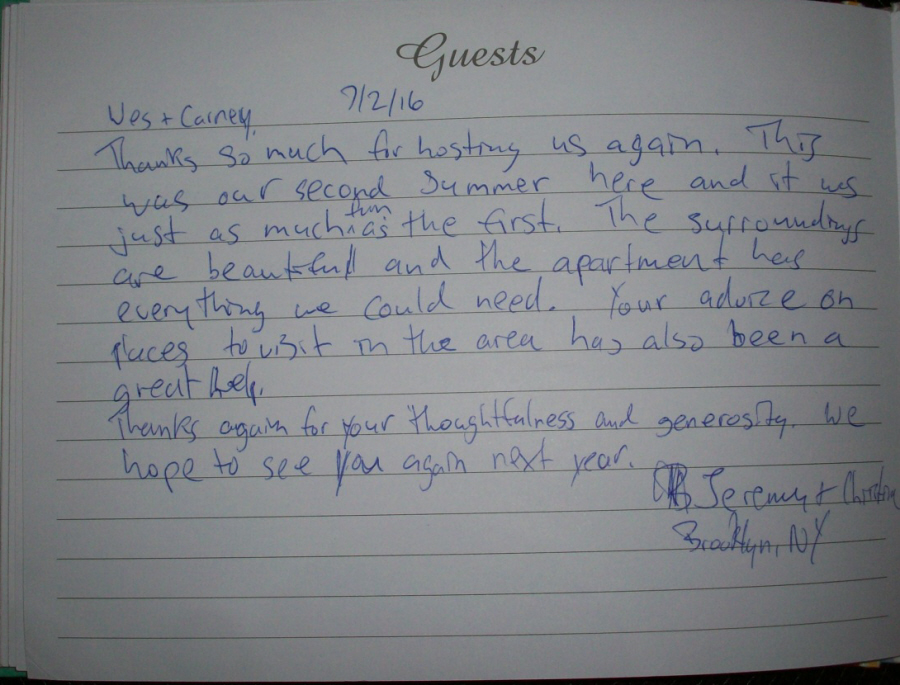 Guests
Wes + Carney, 7/2/16
Thanks so much for hosting us again. This
was our second summer here and it ws
just as much fun as the first. The surroundings
are beautiful and the apartment has
everything we could need. Your advize on
places to visit in the area has also been a
great help.
Thanks again for your thoughtfulness and generosity. We
hope to see you again next year.
Jeremy + Christina
Brooklyn, NY